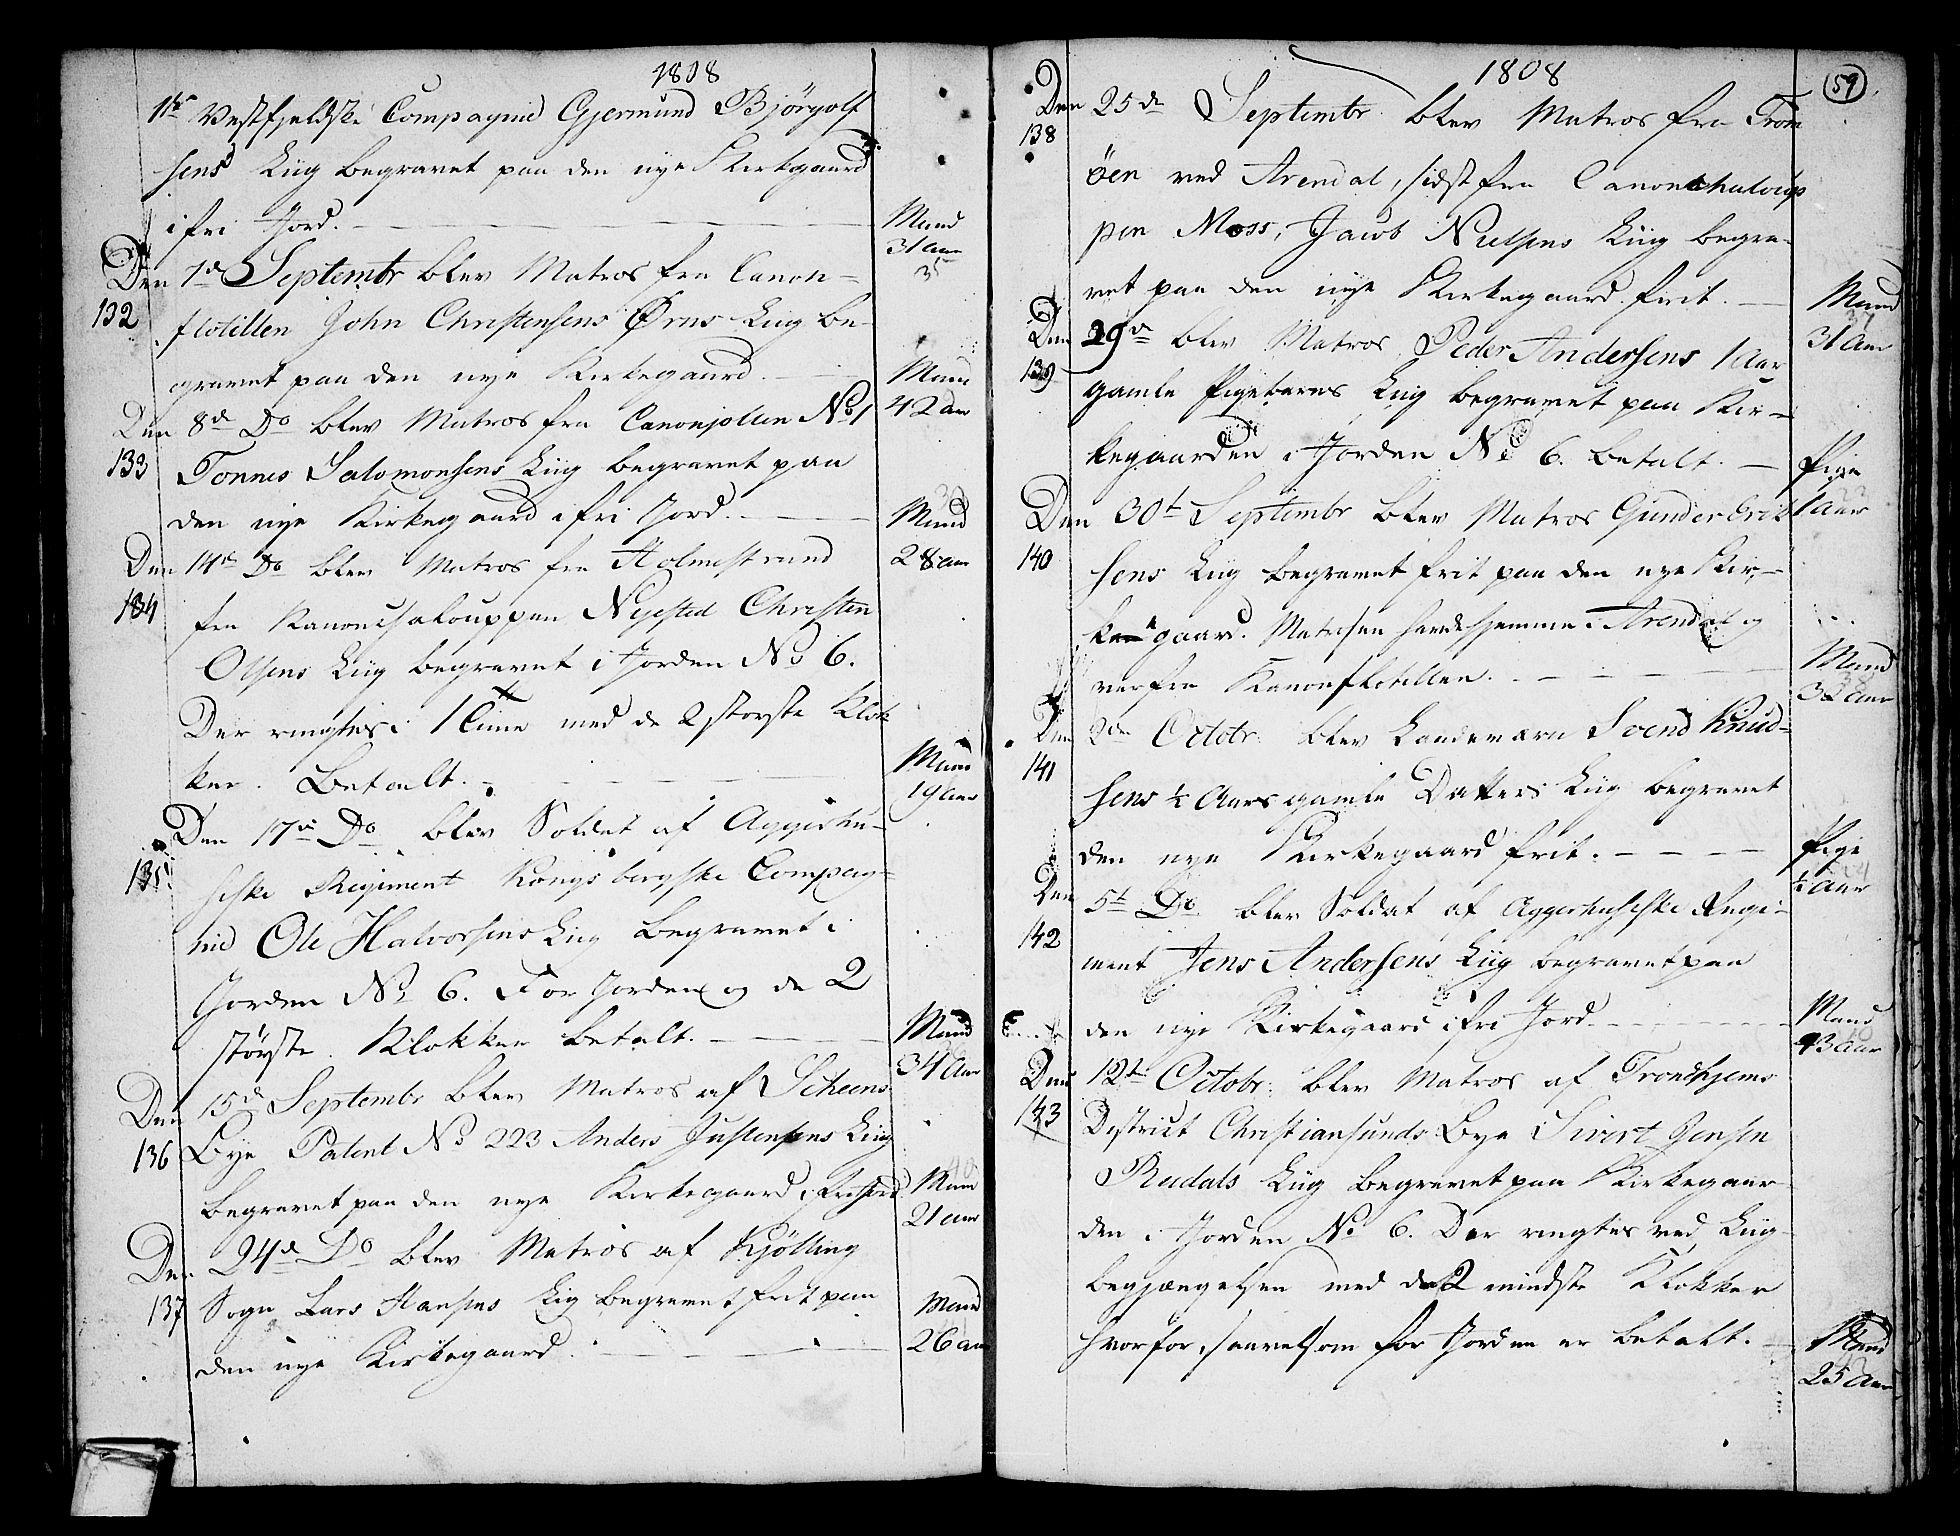 1808
1ste Vestfjeldske Compagnie Gjermund Bjørgolf
sens Liig begravet paa den nye Kirkegaard
i fri Jord.
Mand
31 Aar
Den 1de Septembr blev Matros fra Canon-
132
flotillen John Christensens Ørns Liig be-
gravet paa den nye Kirkegaard.
Mand
42 Aar
Den 8de Do blev Matros fra Canonjollen No 1
133
Tonnes Salomonsens Liig begravet paa
den nye Kirkegaard i fri Jord.
Mand
28 aar
Den 14de Do blev Matros fra Holmestrand
134
fra Kanonchalouppen Nysted Christen
Olsens Liig begravet i Jorden No 6.
Der ringtes i 1 Time med de 2 største Klok
ker. Betalt.
Mand
19 Aar
Den 17de Do blev Soldat af Aggershu-
135
siske Regiment Kongsbergske Compag-
nie Ole Halvorsens Liig begravet i
Jorden No 6. For Jorden og de 2
største Klokker betalt.
Mand
34 Aar
Den 15de Septembr blev Matros af Scheens
136
Bye Patent No 223 Anders Justensens Liig
begravet paa den nye Kirkegaard i fri Jord
Mand
21 aar
Den 24de Do blev Matros af Kjølling
137
Sogn Lars Hansens Liig begravet frit paa
den nye Kirkegaard.
Mand
26 aar
1808
59
Den 25de Septembr blev Matros fra Trom
138
øen ved Arendal, sidst fra Canonchaloup
pen Moss, Jacob Nielsens Liig begra-
vet paa den nye Kirkegaard frit.
Mand
31 Aar
Den 29de blev Matros Peder Andersens 1 Aar
139
gamle Pigebarns Liig begravet paa Kir-
kegaarden i Jorden No 6. betalt.
Pige
1 Aar
Den 30t Septembr blev Matros Gunder Erik
140
sens Liig begravet frit paa den nye Kir-
kegaard. Matrosen havde hjemme i Arendal og
var fra Kanonflotillen.
Mand
32 Aar
Den 2den Octobr: blev Landeværn Svend Knud-
141
sens 1/2 Aars gamle Datters Liig begravet
den nye Kirkegaard frit.
Pige
1/2 Aar
Den 5t Do blev Soldat af Aggershusiske Regi-
142
ment Jens Andersens Liig begravet paa
den nye Kirkegaard i fri Jord.
Mand
43 Aar
Den 12te Octobr: blev Matros af Trondhjems
143
District Christiansunds Bye Sivert Jensen
Rudals Liig begravet paa Kirkegaar
den i Jorden No 6. Der ringtes ved Liig-
begjængelsen med de 2 mindste Klokker
hvorfor, saavelsom for Jorden er betalt.
Mand
25 Aar